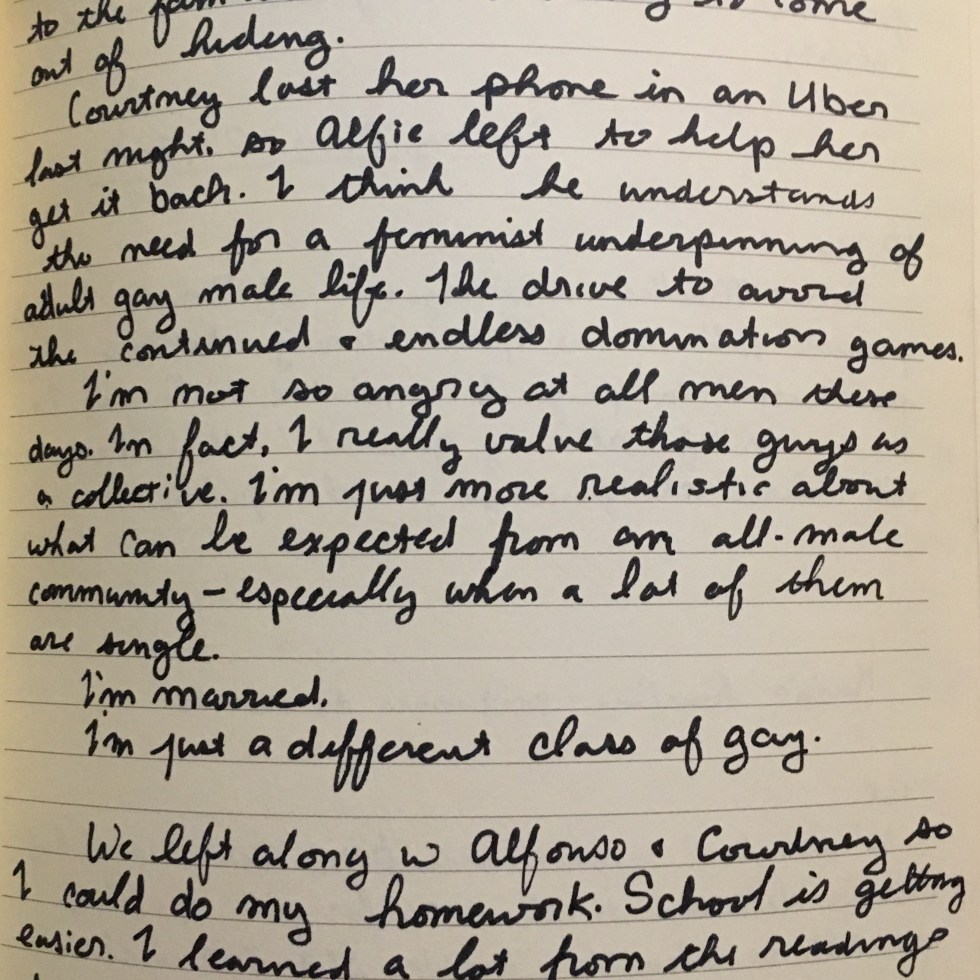 to the
come
out of hiding.
Courtney lost her phone in an Uber
last night, so Alfie left to help her
get it back. I think he understands
the need for a feminist underpinning of
adult gay male life. The drive to avoid
the continued & endless domination games.
I'm not so angry at all men these
days. In fact, I really value those guys as
a collective. I'm just more realistic about
what can be expected from an all-male
community – especially when a lot of them
are single.
I'm married.
I'm just a different class of gay.
We left along w Alfonso & Courtney so
I could do my homework. School is getting
easier. I learned a lot from the readings